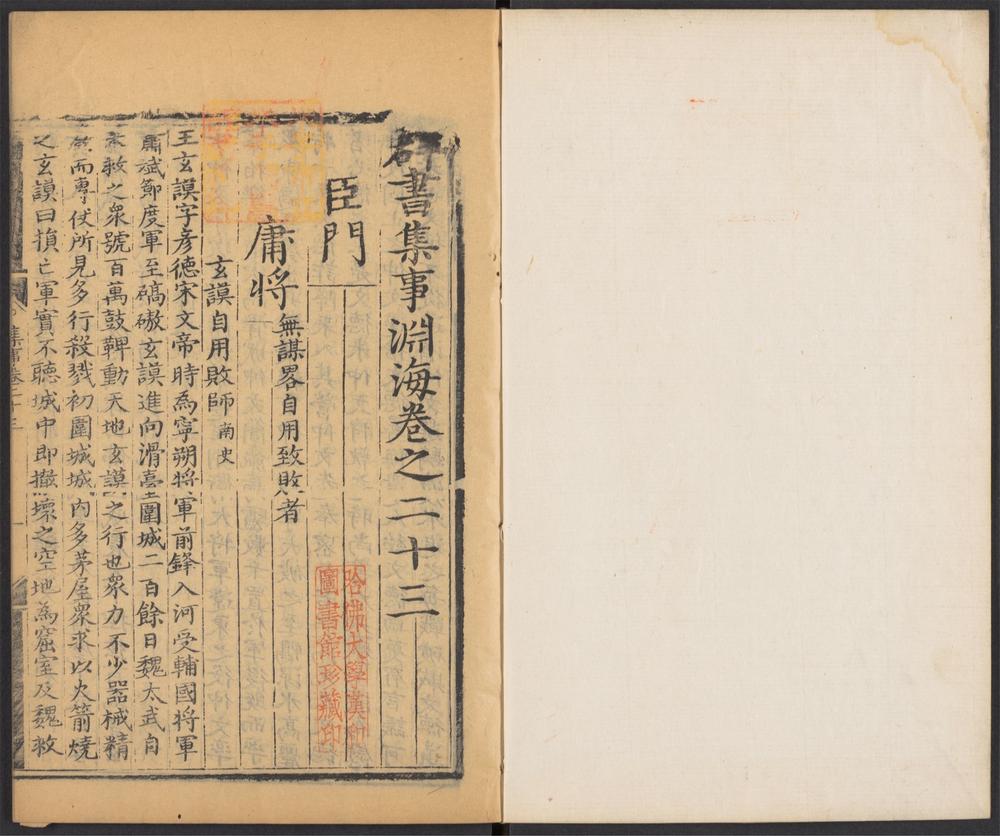 群書集事淵海卷之二十三
臣門
庸將 無謀畧自用致敗者
玄謨自用敗師 南史
王玄謨字彥德宋文帝時為寧朔將軍前鋒入河受輔國將軍
蕭斌節度軍至碻磝玄謨進向滑臺圍城二百餘日魏太武自
來救之衆號百萬鼓鞞動天地玄謨之行也衆力不少器械精
而專仗所見多行殺戮初圍城城內多茅屋衆求以火箭燒
之玄謨曰損亡軍實不聽城中即撤壞之空地為窟室及魏救
集事卷二十三
哈佛大學漢和
圖書館珍藏印